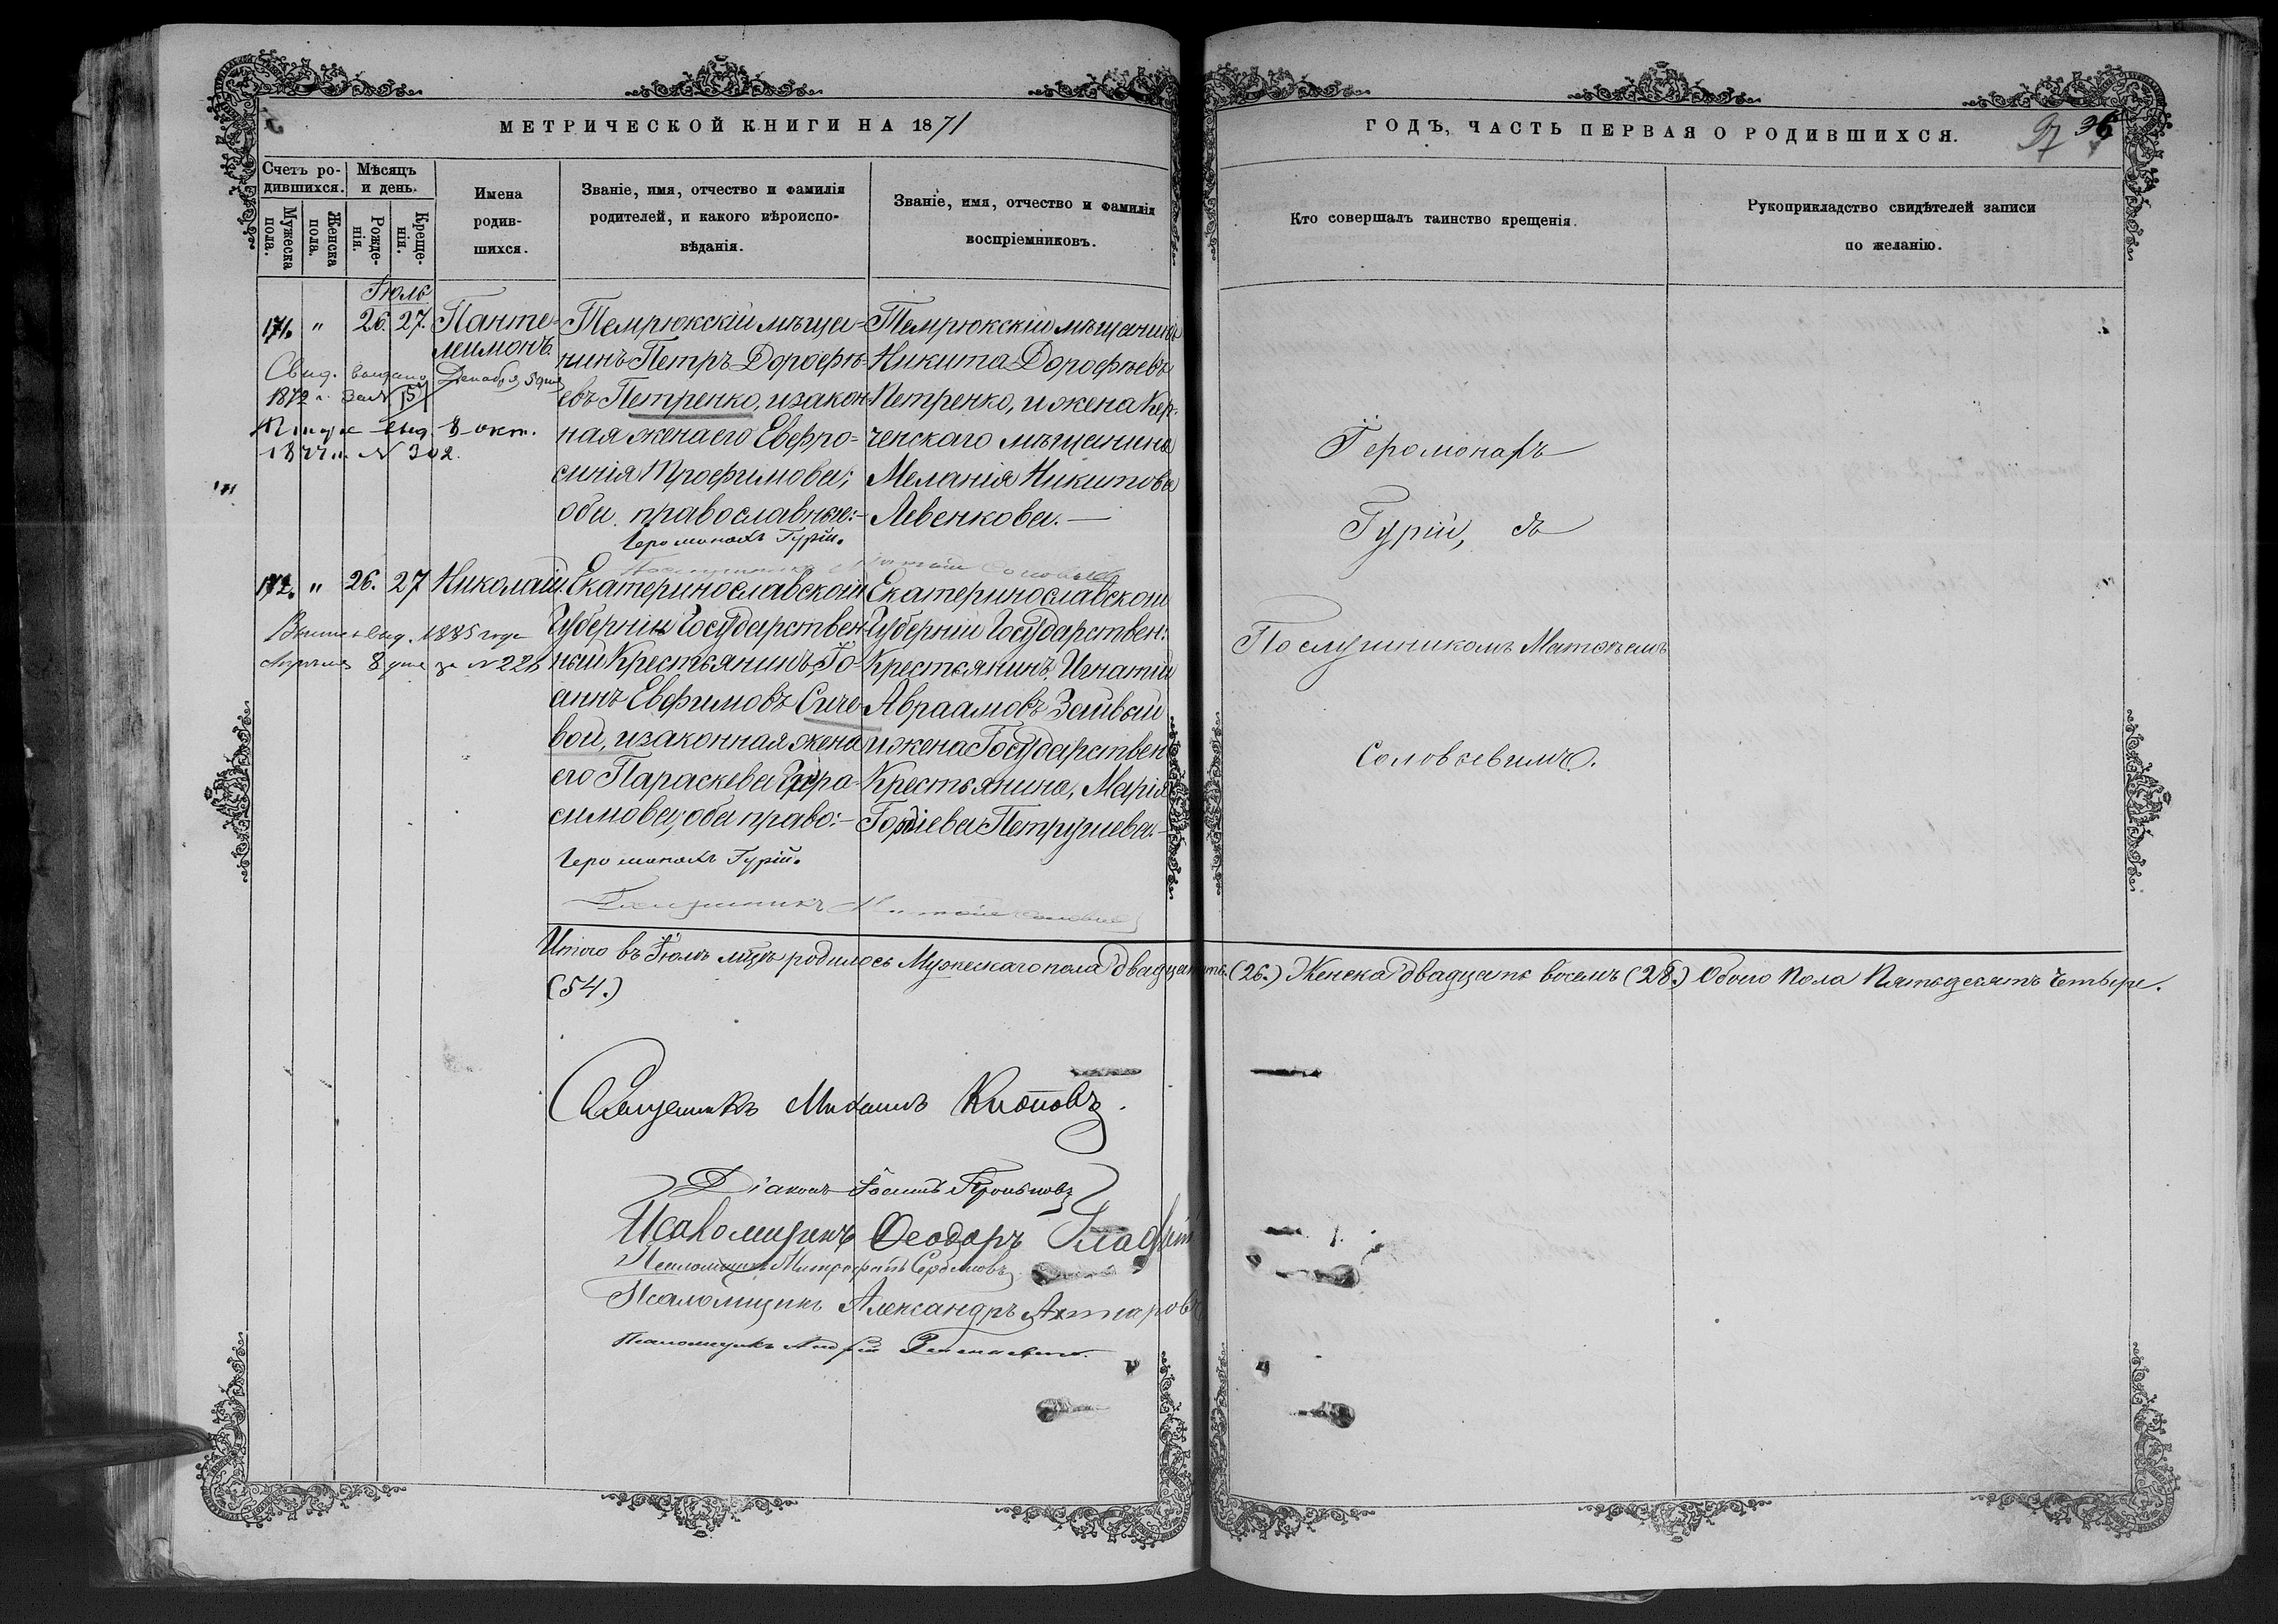 МЕТРИЧЕСКОЙ КНИГИ НА 1871
ГОДЪ, ЧАСТЬ ПЕРВАЯ О РОДИВШИХСЯ.
97 36
Счетъ ро-
дившихся.
Мужеска
пола.
Женска
пола.
Мѣсяцъ
и день.
Рожде-
нія.
Креще-
нія.
Имена
родив-
шихся.
Званіе, имя, отчество и фамилія
родителей, и какого вѣроиспо-
вѣданія.
Званіе, имя, отчество и фамилія
воспріемниковъ.
Кто совершалъ таинство крещенія.
Рукоприкладство свидѣтелей записи
по желанію.
Іюль
171. " 26. 27.
Панте-
леимонъ
Свид. выдано Декабря 5 дня
1872 г. за №
выд. 8 окт.
N 302.
Темрюкскій мѣща-
нинъ Петръ Дорофѣ-
евъ Петренко, и закон-
ная жена его Евфро-
синія Трофимова;
оба православные:-
Іеромонахъ Гурій.
Темрюкскій мѣщанинъ
Никита Дорофѣевъ
Петренко, и жена Кер-
ченскаго мѣщанина
Меланія Никитова
Левенкова.—
Іеромонахъ
Гурій, съ
Послушникомъ Матѳеемъ
Соловьевимъ.
172. " 26. 27
Николай
выд. 1885 года
Апрѣля 8 дня за N 228
Екатеринославской
Губерніи Государствен-
ный Крестьянинъ, Іо-
аннъ Евфимовъ Сиче-
вой, и законная жена
его Параскева Гера-
симова; оба право:-
Іеромонахъ Гурій.
Послушникъ
Екатеринославской
Губерніи Государствен:
Крестьянинъ, Игнатій
Авраамовъ Зайвый
и жена Государствен
Крестьянина, Марія
Гордіева Петрушева.-
Итого въ Іюлѣ мцѣ родилось Мужескаго пола двадцать (26.) Женска двадцать восемь (28.) Обоего Пола Пятьдесятъ Четыре.
(54.)
Священникъ Михаилъ
Діаконъ
Псаломщикъ Ѳеодоръ
Псаломщикъ Митрофанъ
Псаломщикъ Александръ
Псаломщикъ Андрей